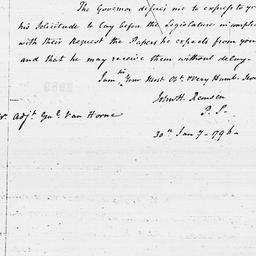 The Governor desires me to express to you
his Solicitude to lay before the Legislature in complian
with their Request the Papers he expects from you
and that he may receive them without delay.
I am Sir Your Most Obt. & Very Humb. Serv
John H. Remsen
P. S.
Adjt. Genl. Van Horne
30th Jany. 1796